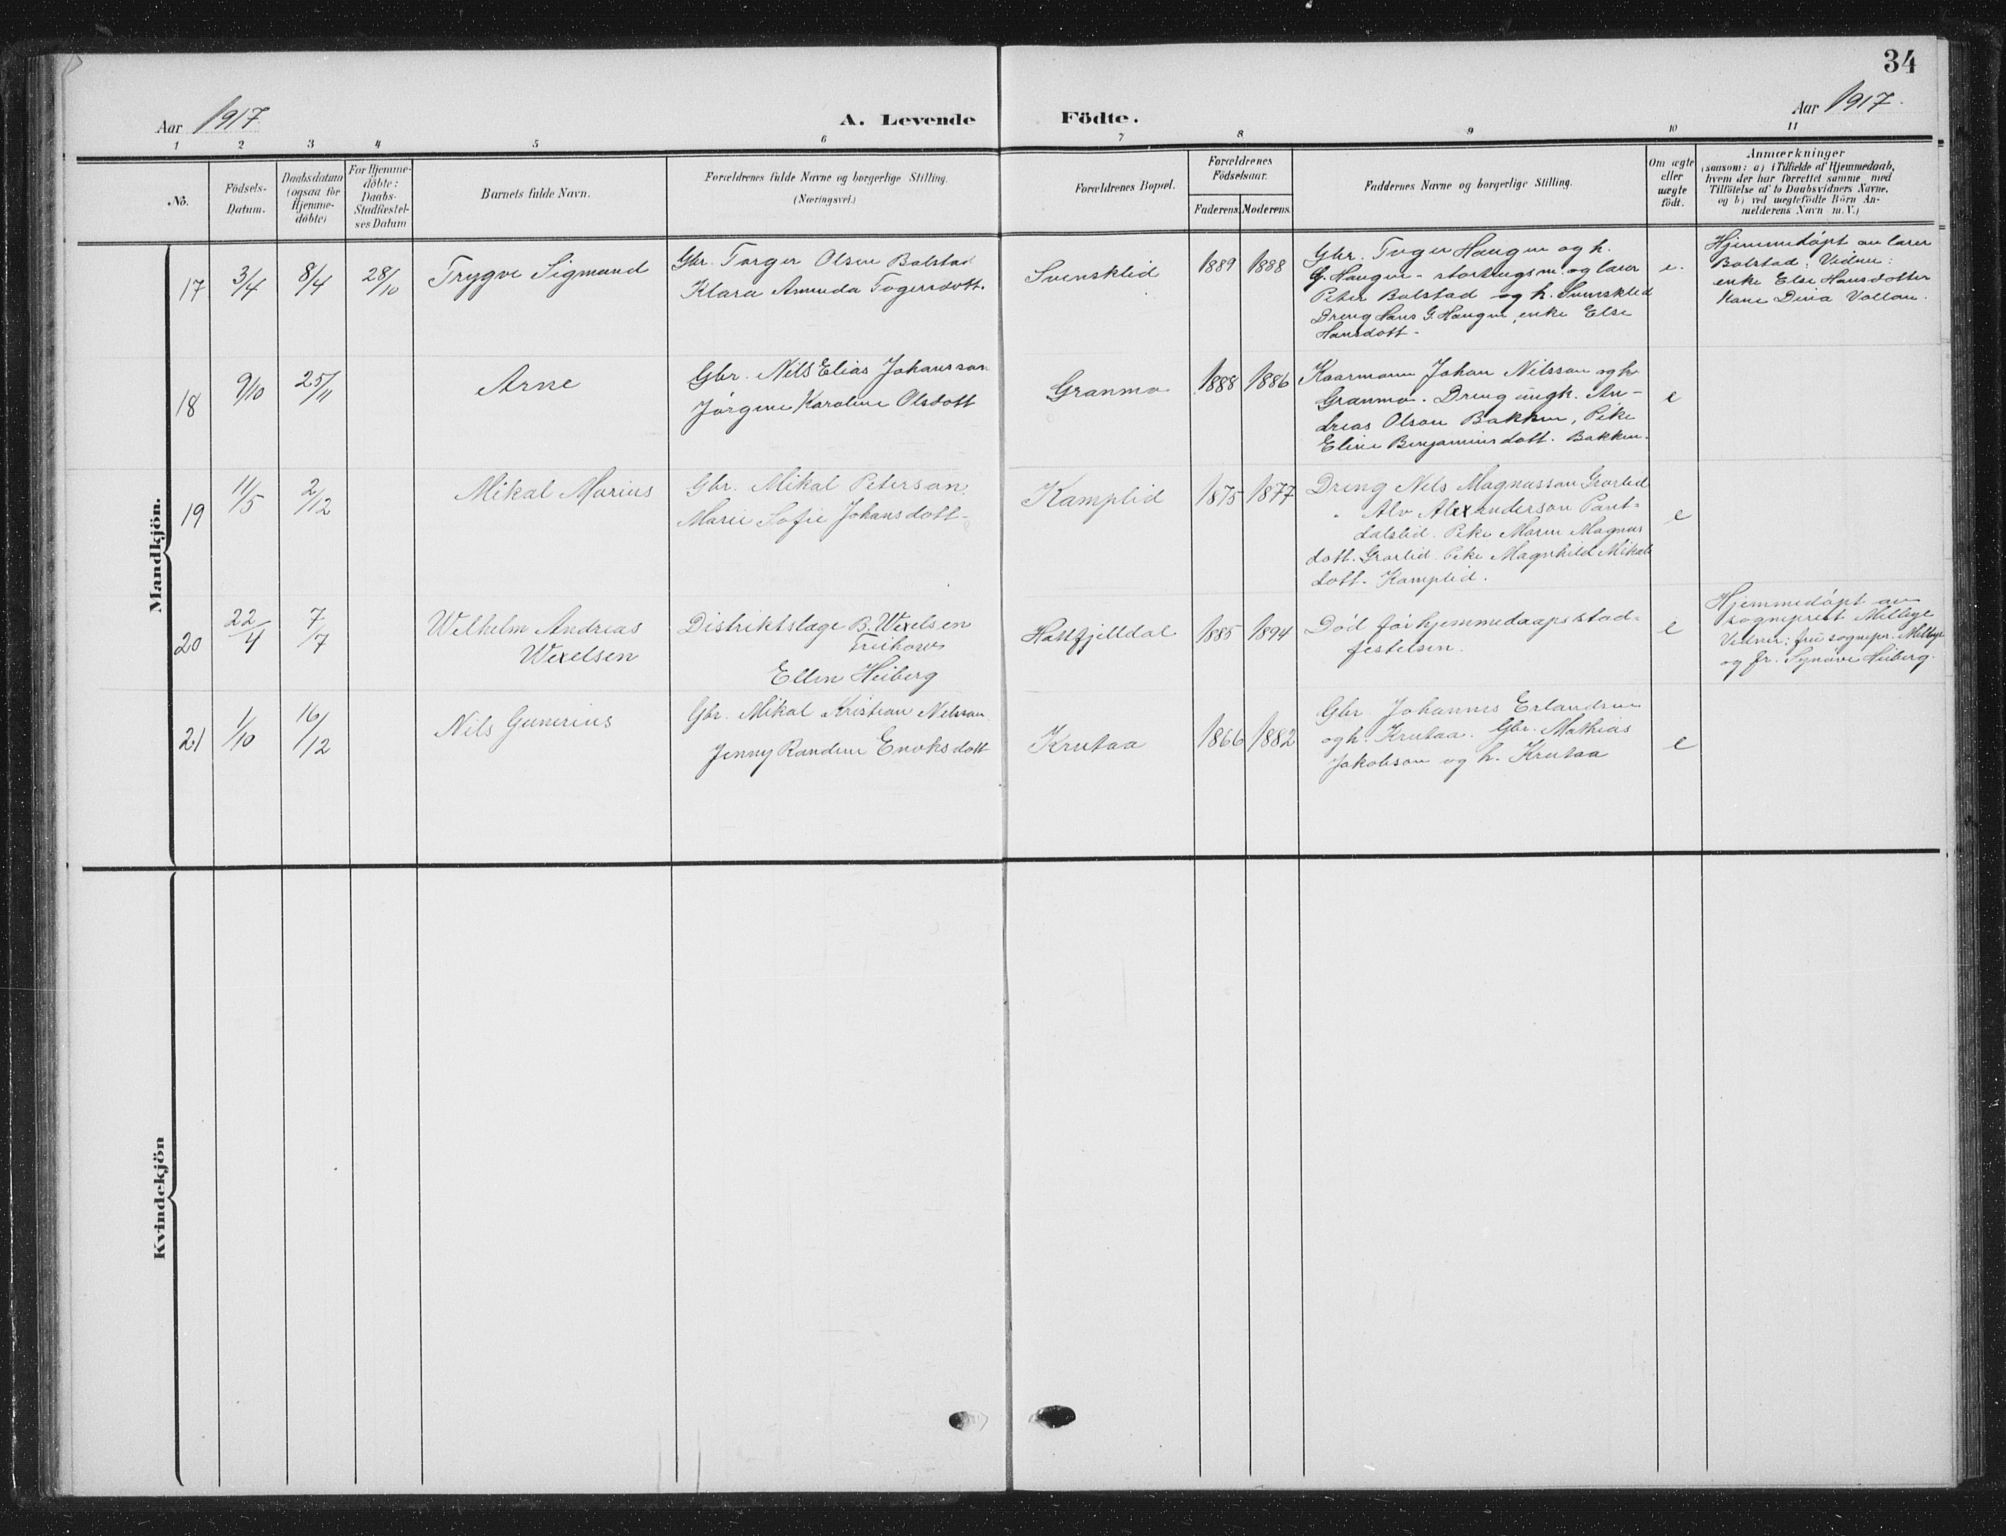 34
Aar 1917
A. Levende Födte.
Aar 1917.
1 2 3 4 5 6 7 8 9 10 11
No.
Födsels-
Datum.
Daabsdatum
(ogsaa for
Hjemme-
döbte)
For Hjemme-
döbte:
Daabs-
Stadfæstel-
ses Datum
Barnets fulde Navn.
Forældrenes fulde Navne og borgerlige Stilling.
(Næringsvei.)
Forældrenes Bopæl.
Forældrenes
Födselsaar.
Faderens. Moderens.
Faddernes Navne og borgerlige Stilling.
Om ægte
eller
uægte
födt.
Anmærkninger
(saasom: a) i Tilfælde af Hjemmedaab,
hvem der har forrettet samme med
Tilföielse af to Daabsvidners Navne,
og b) ved uægtefödte Börn An-
melderens Navn m. V.)
Mandkjön.
17 3/4 8/4 28/10 Trygve Sigmund
Gbr. Torger Olsen Bolstad
Klara Amunda Togersdott.
Svensklid 1889 1888
Gbr. Torger Haugen og h.
G. Haugen - stortingsm. og lærer
Peter Bolstad og h. Svensklid
Dreng Hans G. Haugen, enke Else
Hansdott -
e.
Hjemmedøpt av lærer
Bolstad: Vidner:
enke Else Hansdotter
Kone Dina Vollan.
18 9/10 25/11 Arne
Gbr. Nils Elias Johansson
Jørgine Karoline Olsdott
Granmo 1888 1886
Kaarmann Johan Nilsson og h.
Granmo. Dreng ungk. An-
dreas Olson Bakken, Pike
Eline Benjaminsdott. Bakken.
e
19 11/5 2/12 Mikal Marius
Gbr. Mikal Peterson
Marie Sofie Johansdott-
Kamplid 1875 1877
Dreng Nels Magnusson Grorlid
" Alv Alexanderson Pant-
dalslid. Pike Maren Magnus
dott. Grorlid. Pike Magnhild Mikals
dott. Kamplid.
e
20 22/4 7/7 Welhelm Andreas
Wexelsen
Distriktslæge B. Wexelsen
Ellen Heiberg
Hattfjelldal 1885 1894
Død før hjemmedaapsstad-
festelsen.
e
Hjemmedøpt av
sogneprest Milbye
Vidner: fru sognepr. Milbye
og fr. Synøve Heiberg.
21 1/10 16/12 Nils Gunerius
Gbr. Mikal Kristian Nelsson
Jenny Randine Enoksdott
Krutaa 1866 1882
Gbr Johannes Erlandsen
og h. Krutaa. Gbr. Mathias
Jakobson og h. Krutaa
e
Kvindekjön